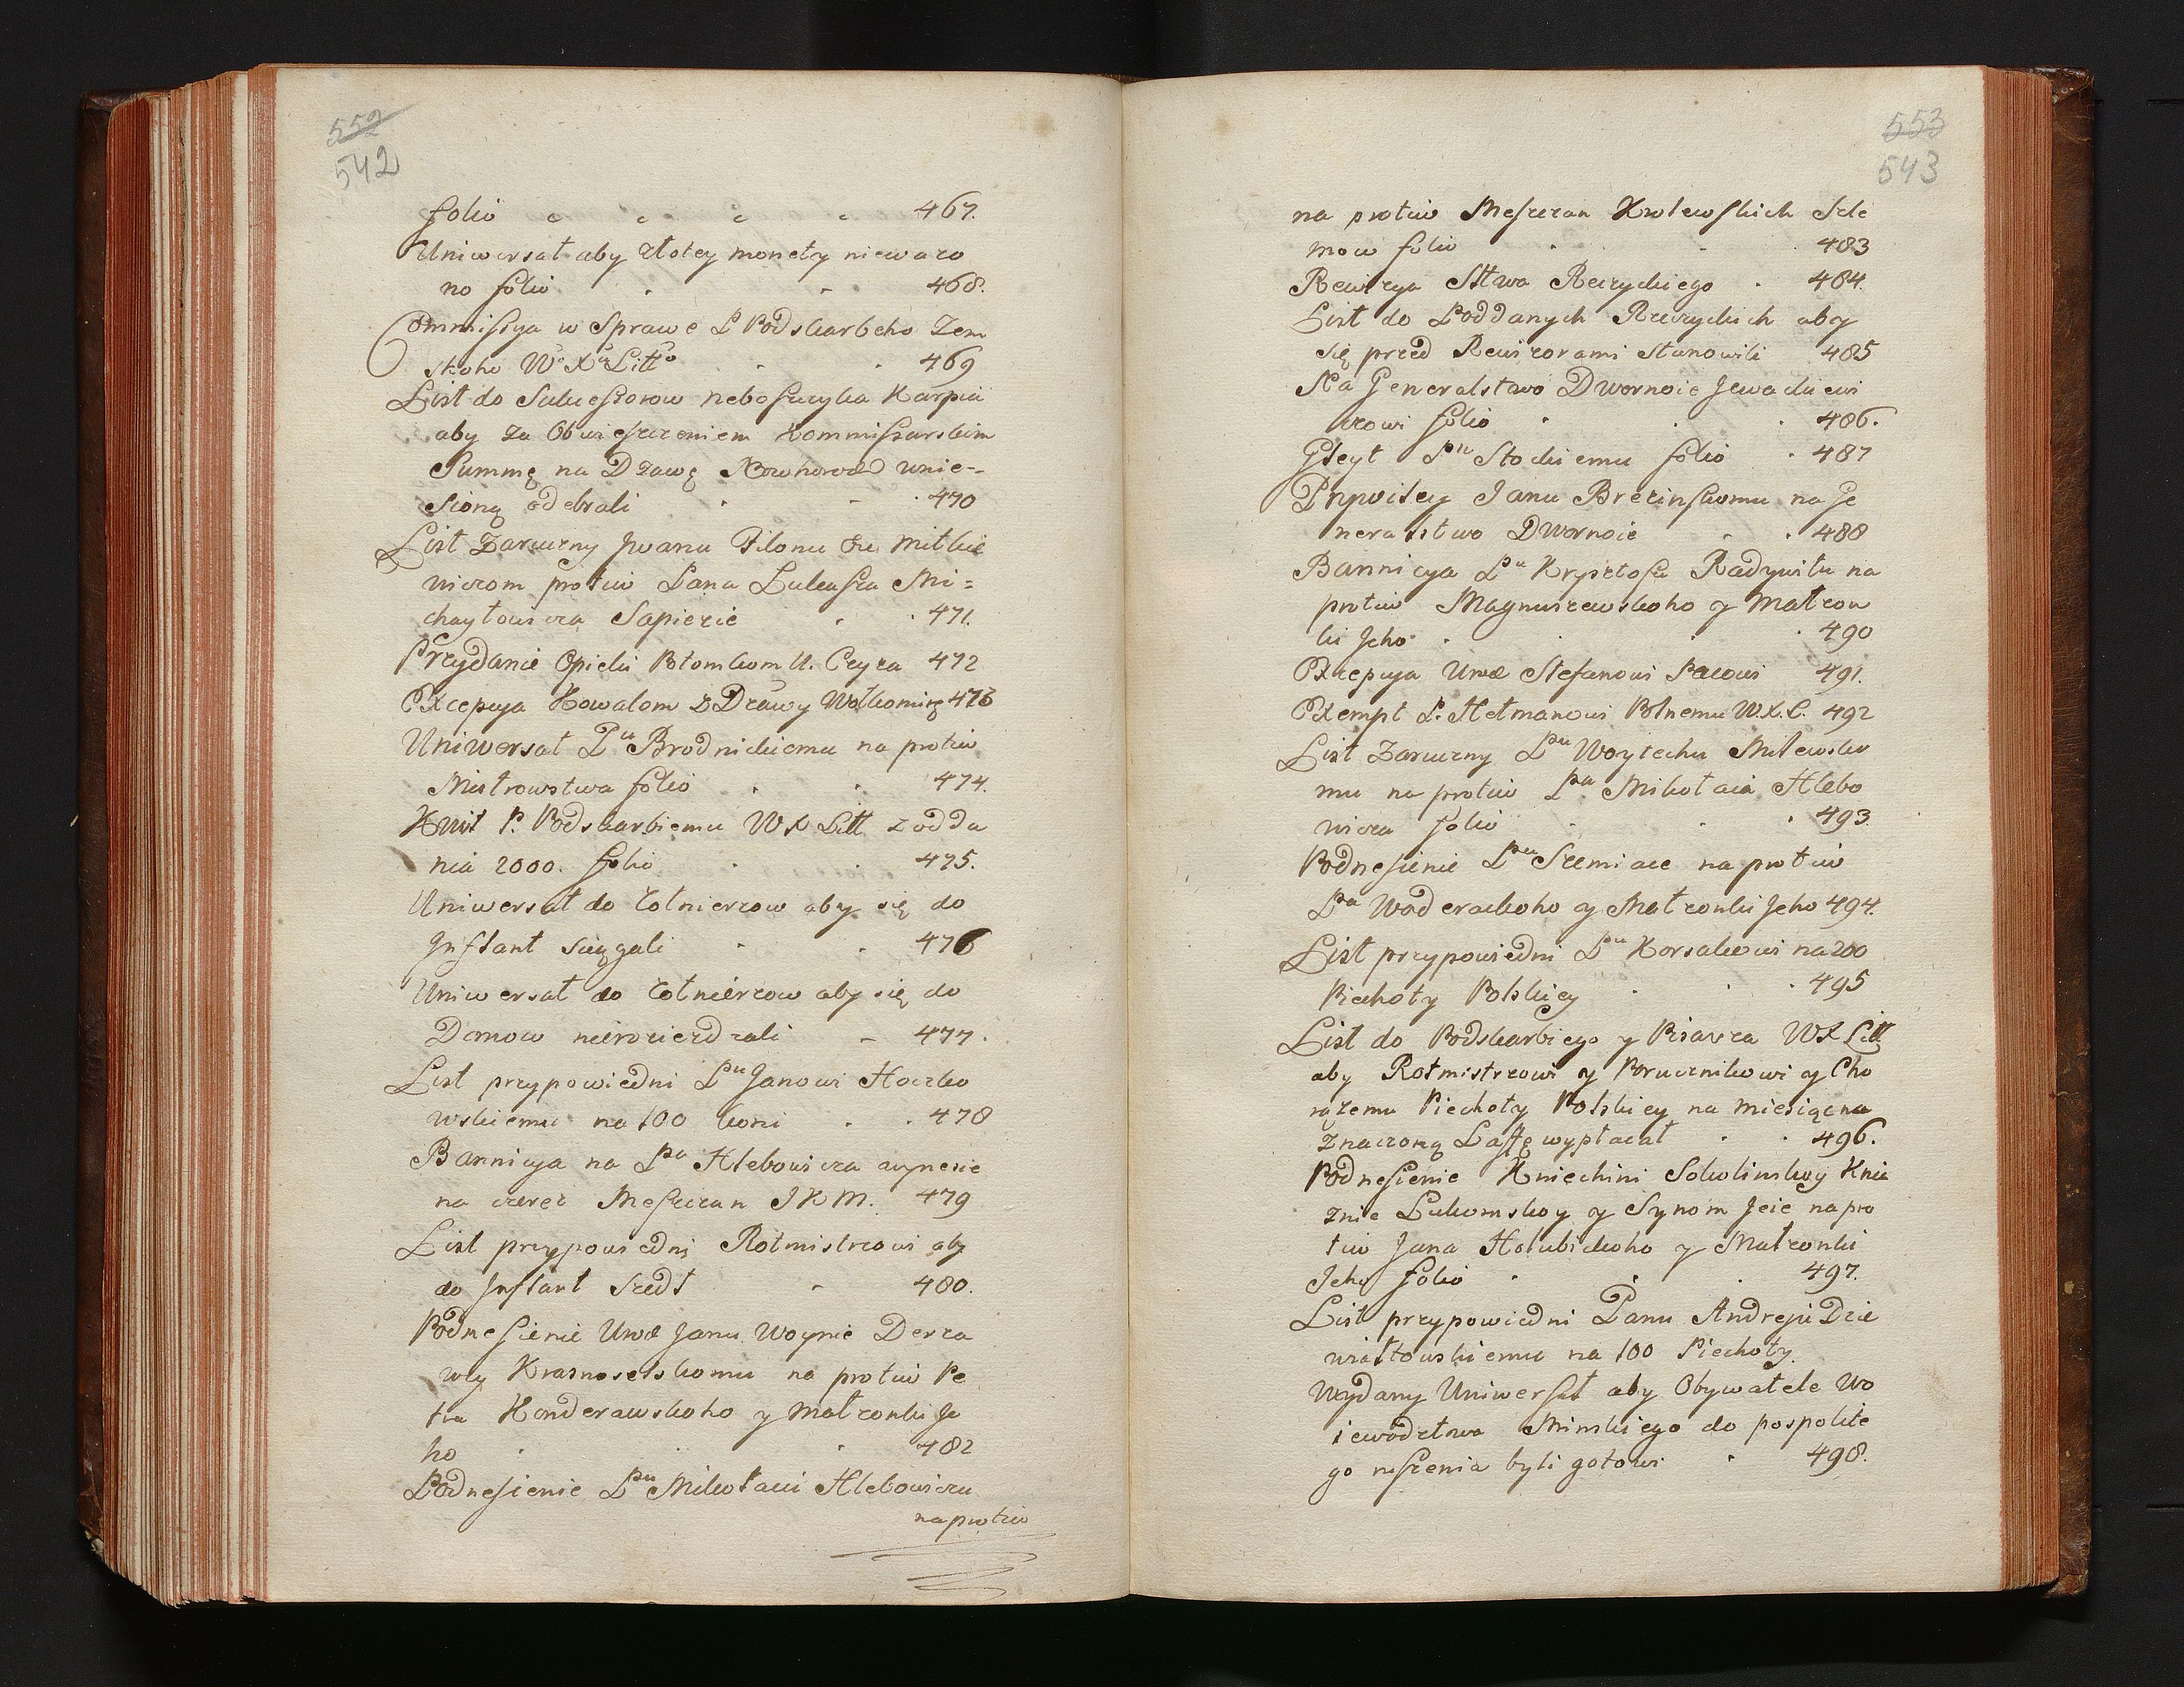 552
542
folio 467.
Uniwersał aby złotey monety niewazo
no folio 468.
Commissya w Sprawe P Podskarbeho Zem
skoho Wo Xa Litto 469
List do Sukcessorow neboszczyka Karpia
aby za Obwieszczeniem Kommissarskim
Summę na Dzawę Nowhorod wnie-
sioną odebrali 470
List Zaruczny Jwanu Filonu Mitkie
wiczom protiw Pana Lukasza Mi=
chayłowicza Sapiezie 471.
Przydanie Opieki Potomkom U. Ceyza 472
Excepcya Kowalom z Dzawy Wołkominę 473
Uniwersał Pu Brodnickiemu na protiw
Mistrowstwa folio 474.
Kwit P. Podskarbiemu W X Litt z odda
nia 2000. folio 475.
Uniwersał do Żołnierzow aby się do
Jnflant sciągali 476
Uniwersał do żołnierzow aby się do
Domow nierozierdzali 477.
List przypowiedni Pu Janowi Hoczko
wskiemu na 100 koni 478
Bannicya na Pa Hlebowicza wynesie
na czerez Meszczan J K M. 479
List przypowiedni Rotmistrzowi aby
do Jnflant szedł 480.
Podnesienie Urod Janu Woynie Derza
wcy Krasnoselskomu na protiw Pe
tra Konderawskoho y Małzonki Je
ho 482
Podnesienie Pu Mikołaiu Hlebowiczu
na protiw
553
543
na protiw Meszczan Krolewskich Szle
mow folio 483
Rewizya Sttwa Rzeczyckiego 484.
List do Poddanych Rzeczyckich aby
się przed Rewizorami stanowili 485
Na Generalstwo Dwornoie Jewachiewi
czowi folio 486.
Gleyt Pu Stockiemu folio 487
Prypoiley Janu Brezinskomu na Ge
neralstwo Dwornoie 488
Bannicya Pu Krysztofu Radywiłu na
protiw Magnuszewskoho y Małzon
ki Jeho 490
Excepcya Urod Stefanowi Pacowi 491.
Exempt P. Hetmanowi Polnemu W.X.L. 492
List Zaruczny Pu Woytechu Milewsko
mu na protiw Pa Mikołaia Hlebo
wicza folio 493.
Podnesienie Pu Szemiace na protiw
Pa Woderackoho y Małzonki Jeho 494.
List przypowiedni Pu Korsakowi na 200
Piechoty Polskiey 495
List do Podskarbiego y Pisarza W X Litt
aby Rotmistrzowi y Porucznikowi y Cho
rążemu Piechoty Polskiey na miesiąc na
znaczoną Laffę wypłacał 496.
Podnesienie Kniechini Sokolinskoy Knia
znie Lukomskoy y Synom Jeie na pro
tiw Jana Holubickoho y Małzonki
Jeho folio 497.
List przypowiedni Panu Andrejú Dzie
wiałtowskiemu na 100 Piechoty
Wydany Uniwersał aby Obywatele Wo
iewodztwa Minskiego do pospolite
go ruszenia byli gotowi 498.